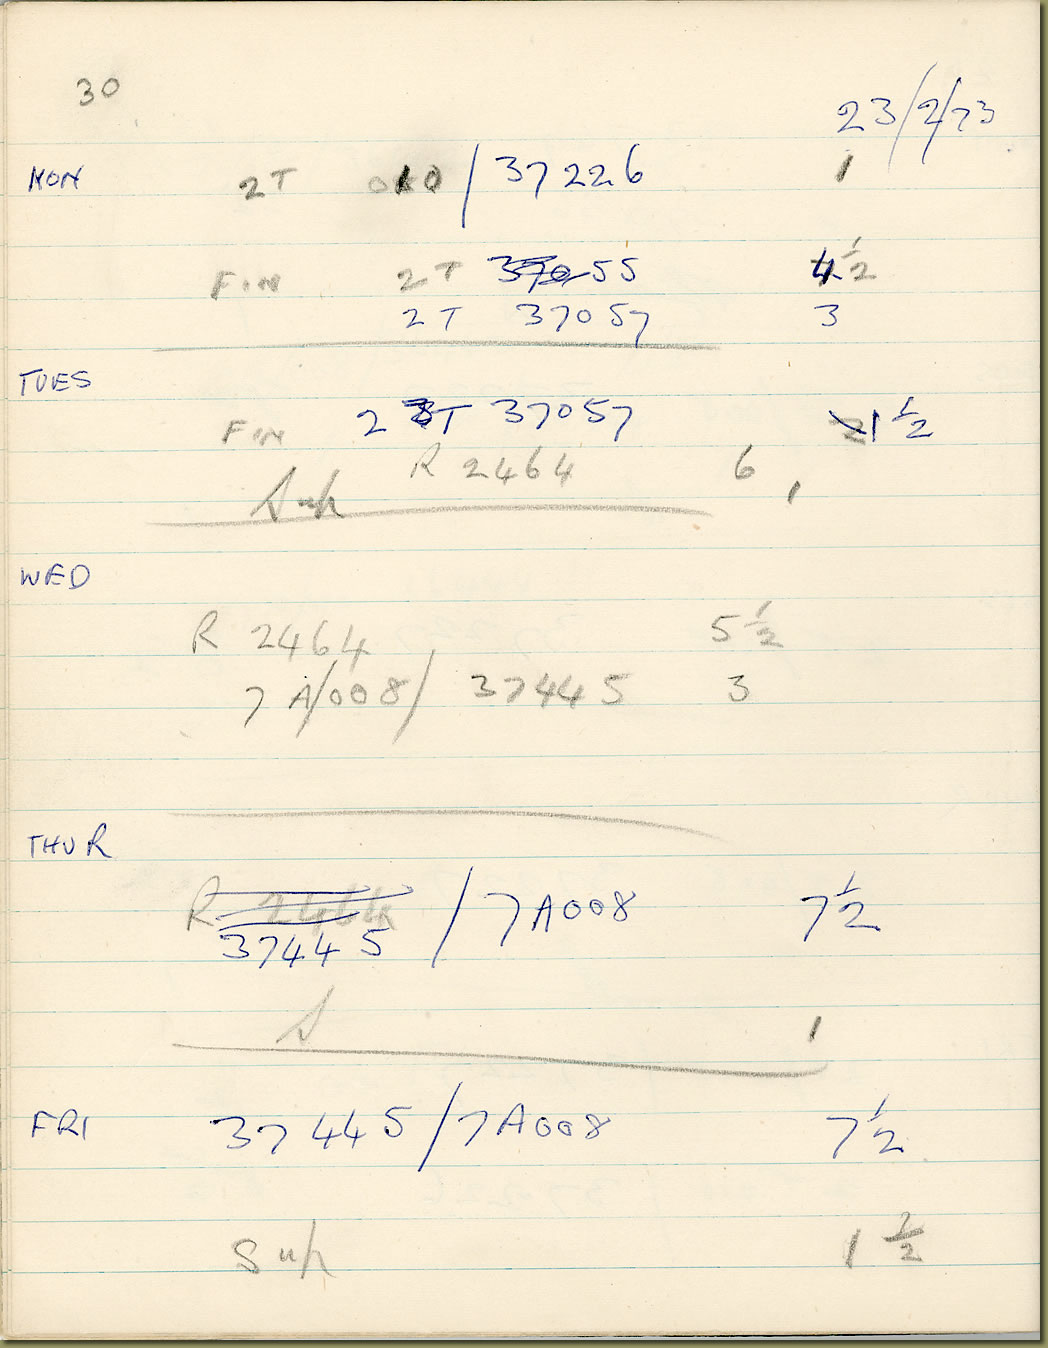 30
23/2/73
MON 2T 010 / 37226 1
FIN 2T 37055 4 1/2
2T 37057 3
TUES
FIN 2 T 37057 1 1/2
R 2464 6
Sup 1
WED
R 2464 5 1/2
7A/008/ 37445 3
THUR
R 2464 / 7A008 7 1/2
37445
S 1
FRI 37445 / 7A008 7 1/2
Sup 1 1/2